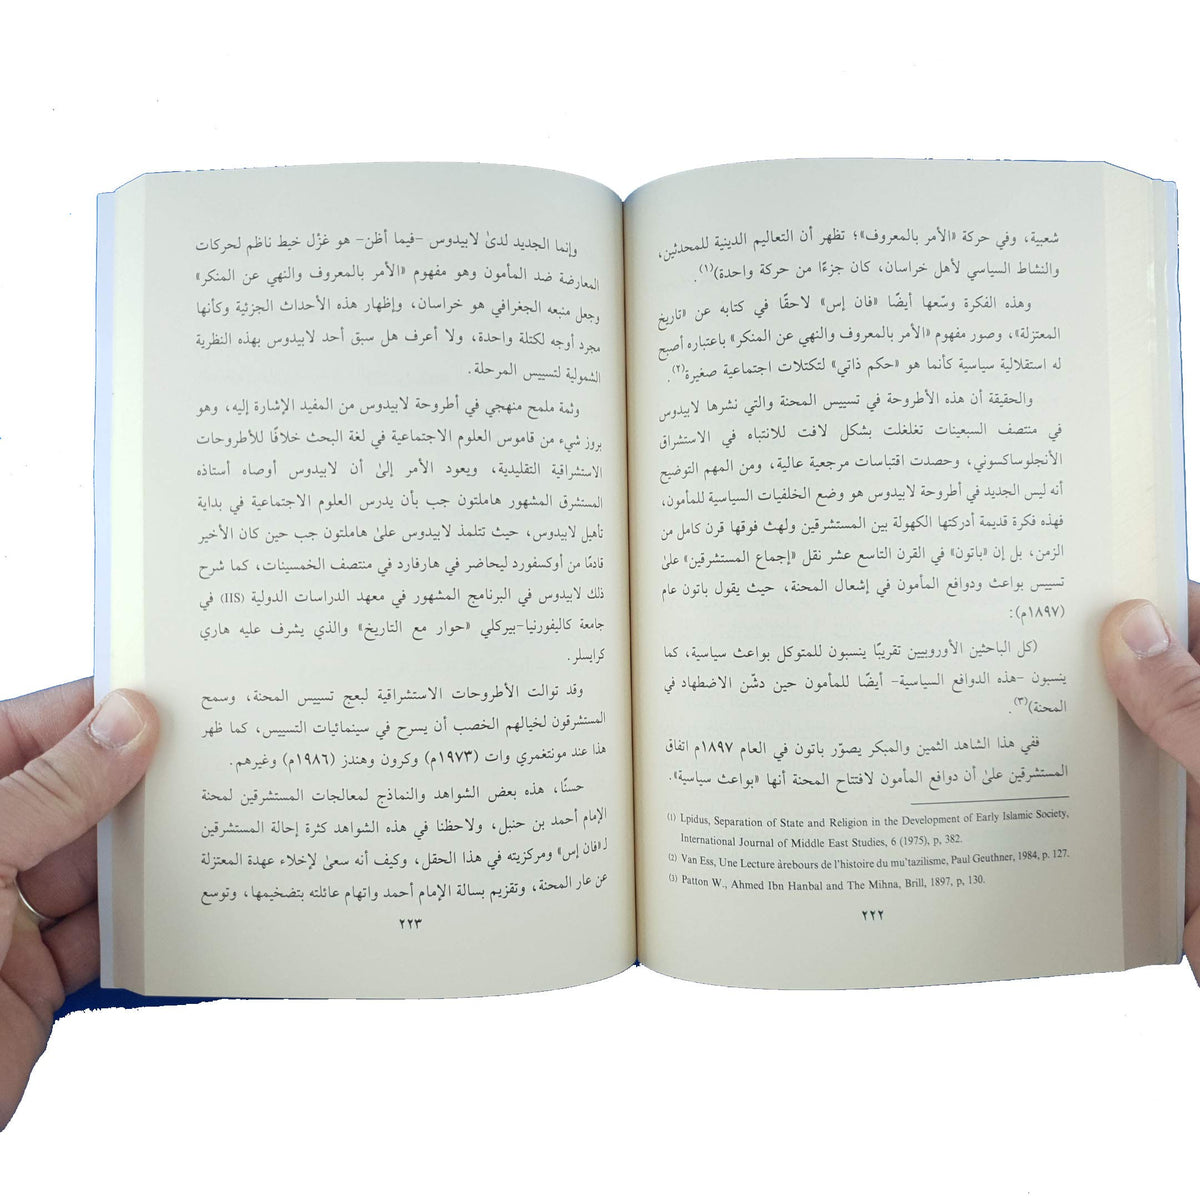 شعبية، وفي حركة «الأمر بالمعروف»؛ تظهر أن التعاليم الدينية للمحدثين،
والنشاط السياسي لأهل خراسان، كان جزءًا من حركة واحدة)(١).
وهذه الفكرة وسّعها أيضًا «فان إس» لاحقًا في كتابه عن «تاريخ
المعتزلة»، وصور مفهوم «الأمر بالمعروف والنهي عن المنكر» باعتباره أصبح
له استقلالية سياسية كأنما هو «حكم ذاتي» لتكتلات اجتماعية صغيرة(٢).
والحقيقة أن هذه الأطروحة في تسييس المحنة والتي نشرها لابيدوس
في منتصف السبعينات تغلغلت بشكل لافت للانتباه في الاستشراق
الأنجلوساكسوني، وحصدت اقتباسات مرجعية عالية، ومن المهم التوضيح
أنه ليس الجديد في أطروحة لابيدوس هو وضع الخلفيات السياسية للمأمون،
فهذه فكرة قديمة أدركتها الكهولة بين المستشرقين ولهث فوقها قرن كامل من
الزمن، بل إن «باتون» في القرن التاسع عشر نقل «إجماع المستشرقين» علىٰ
تسييس بواعث ودوافع المأمون في إشعال المحنة، حيث يقول باتون عام
(١٨٩٧م):
(كل الباحثين الأوروبيين تقريبًا ينسبون للمتوكل بواعث سياسية، كما
ينسبون -هذه الدوافع السياسية- أيضًا للمأمون حين دشّن الاضطهاد في
المحنة)(٣).
ففي هذا الشاهد الثمين والمبكر يصوّر باتون في العام ١٨٩٧م اتفاق
المستشرقين علىٰ أن دوافع المأمون لافتتاح المحنة أنها «بواعث سياسية».
(1) Lpidus, Separation of State and Religion in the Development of Early Islamic Society,
International Journal of Middle East Studies, 6 (1975), p, 382.
(2) Van Ess, Une Lecture àrebours de l'histoire du mu'tazilisme, Paul Geuthner, 1984, p. 127.
(3) Patton W., Ahmed Ibn Hanbal and The Mihna, Brill, 1897, p, 130.
٢٢٢
وإنما الجديد لدىٰ لابيدوس -فيما أظن- هو غزْل خيط ناظم لحركات
المعارضة ضد المأمون وهو مفهوم «الأمر بالمعروف والنهي عن المنكر»
وجعل منبعه الجغرافي هو خراسان، وإظهار هذه الأحداث الجزئية وكأنها
مجرد أوجه لكتلة واحدة، ولا أعرف هل سبق أحد لابيدوس بهذه النظرية
الشمولية لتسييس المرحلة.
وثمة ملمح منهجي في أطروحة لابيدوس من المفيد الإشارة إليه، وهو
بروز شيء من قاموس العلوم الاجتماعية في لغة البحث خلافًا للأطروحات
الاستشراقية التقليدية، ويعود الأمر إلىٰ أن لابيدوس أوصاه أستاذه
المستشرق المشهور هاملتون جب بأن يدرس العلوم الاجتماعية في بداية
تأهيل لابيدوس، حيث تتلمذ لابيدوس علىٰ هاملتون جب حين كان الأخير
قادمًا من أوكسفورد ليحاضر في هارفارد في منتصف الخمسينات، كما شرح
ذلك لابيدوس في البرنامج المشهور في معهد الدراسات الدولية (IIS) في
جامعة كاليفورنيا-بيركلي «حوار مع التاريخ» والذي يشرف عليه هاري
كرايسلر.
وقد توالت الأطروحات الاستشراقية لبعج تسييس المحنة، وسمح
المستشرقون لخيالهم الخصب أن يسرح في سينمائيات التسييس، كما ظهر
هذا عند مونتغمري وات (١٩٧٣م) وكرون وهندز (١٩٨٦م) وغيرهم.
حسنًا، هذه بعض الشواهد والنماذج لمعالجات المستشرقين لمحنة
الإمام أحمد بن حنبل، ولاحظنا في هذه الشواهد كثرة إحالة المستشرقين
لـ«فان إس» ومركزيته في هذا الحقل، وكيف أنه سعىٰ لإخلاء عهدة المعتزلة
عن عار المحنة، وتقزيم بسالة الإمام أحمد واتهام عائلته بتضخيمها، وتوسع
٢٢٣